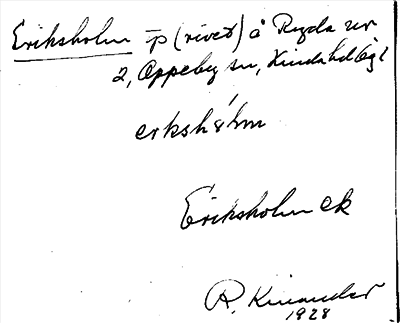 Eriksholm tp (rivet) å Ryda nr
2, Oppeby sn, Kinda hd Ögl
erkshólm
Eriksholm ek
R. Kinander
1928